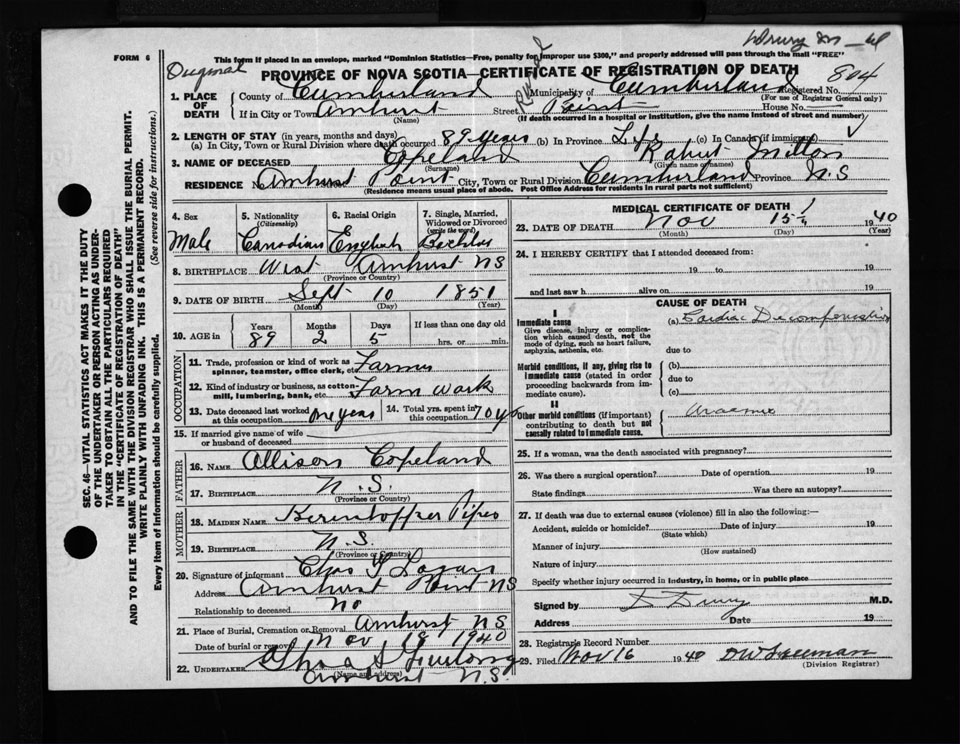 FORM 6
This form if placed in an envelope, marked "Dominion Statistics—Free, penalty for improper use $300," and properly addressed will pass through the mail "FREE"
PROVINCE OF NOVA SCOTIA—CERTIFICATE OF REGISTRATION OF DEATH
Registered No. 804
(For use of Registrar General only)
1. PLACE OF DEATH
County of Cumberland Municipality of Cumberland
If in City or Town Amhurst Street Point House No.
(Name) (If death occurred in a hospital or institution, give the name instead of street and number)
2. LENGTH OF STAY (in years, months and days)
(a) In City, Town or Rural Division where death occurred 89 years (b) In Province Life (c) In Canada (if immigrant)
3. NAME OF DECEASED Copeland
(Surname) (Given name or names)
RESIDENCE Amhurst Point City, Town or Rural Division Cumberland Province N.S
(Residence means usual place of abode. Post Office Address for residents in rural parts not sufficient)
4. Sex Male
5. Nationality (Citizenship) Canadian
6. Racial Origin English
7. Single, Married, Widowed or Divorced (write the word)
8. BIRTHPLACE West Amhurst NS
(Province or Country)
9. DATE OF BIRTH Sept 10 1851
(Month) (Day) (Year)
10. AGE in Years 89 Months 2 Days 5 If less than one day old hrs. or min.
OCCUPATION
11. Trade, profession or kind of work as spinner, teamster, office clerk, etc. Farmer
12. Kind of industry or business, as cotton-mill, lumbering, bank, etc. Farm Work
13. Date deceased last worked at this occupation 14. Total yrs. spent in this occupation 70 yrs
15. If married give name of wife or husband of deceased
FATHER
16. NAME Allison Copeland
17. BIRTHPLACE N.S.
(Province or Country)
MOTHER
18. MAIDEN NAME Pipes
19. BIRTHPLACE N.S.
(Province or Country)
20. Signature of informant Chas Logan
Address Amhurst Point NS
Relationship to deceased No
21. Place of Burial, Cremation or Removal Amhurst NS
Date of burial or removal Nov 18 1940
22. UNDERTAKER Furlong
(Name and address)
Amhurst N.S.
MEDICAL CERTIFICATE OF DEATH
23. DATE OF DEATH Nov 15 1940
(Month) (Day) (Year)
24. I HEREBY CERTIFY that I attended deceased from:
19 to 19
and last saw h alive on 19
CAUSE OF DEATH
I
Immediate cause
Give disease, injury or complication which caused death, not the mode of dying, such as heart failure, asphyxia, asthenia, etc.
(a) Cardiac Decompensation
due to
Morbid conditions, if any, giving rise to immediate cause (stated in order proceeding backwards from immediate cause).
(b)
due to
(c)
II
Other morbid conditions (if important) contributing to death but not causally related to immediate cause.
25. If a woman, was the death associated with pregnancy?
26. Was there a surgical operation? Date of operation 19
State findings Was there an autopsy?
27. If death was due to external causes (violence) fill in also the following:—
Accident, suicide or homicide? Date of injury 19
(State which)
Manner of injury
(How sustained)
Nature of injury
Specify whether injury occurred in industry, in home, or in public place
Signed by Drury M.D.
Address Date 19
28. Registrars Record Number
29. Filed Nov 16 1940
(Division Registrar)
SEC. 46—VITAL STATISTICS ACT MAKES IT THE DUTY
OF THE UNDERTAKER OR PERSON ACTING AS UNDER-
TAKER TO OBTAIN ALL THE PARTICULARS REQUIRED
IN THE "CERTIFICATE OF REGISTRATION OF DEATH"
AND TO FILE THE SAME WITH THE DIVISION REGISTRAR WHO SHALL ISSUE THE BURIAL PERMIT.
WRITE PLAINLY WITH UNFADING INK. THIS IS A PERMANENT RECORD.
Every item of information should be carefully supplied. (See reverse side for instructions.)